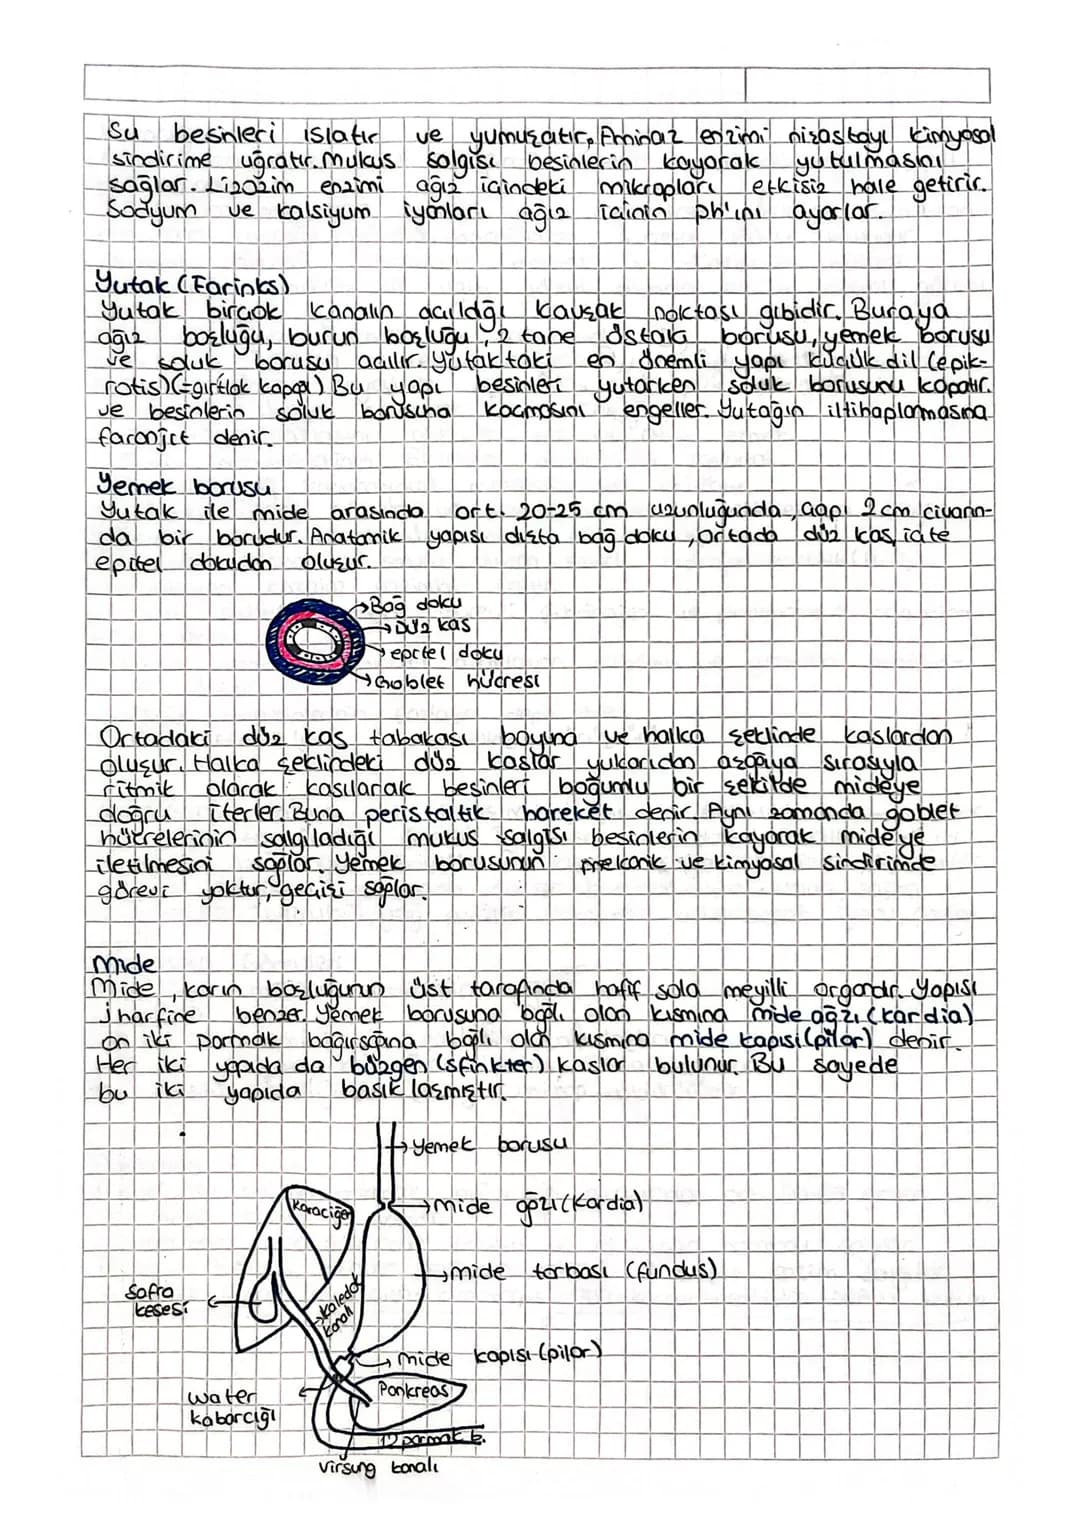 Su besinleri ıslatır ve yumuşatır, Aminaz enzimi nişastayı kimyasal
sindirime uğratır. Mukus salgısı besinlerin kayarak yutulmasını
sağlar. Lizozim enzimi ağız içindeki mikropları etkisiz hale getirir.
Sodyum ve kalsiyum iyonları ağız içinin ph'ını ayarlar.
Yutak (Farinks)
Yutak birçok kanalın açıldığı kavşak noktası gibidir. Buraya
ağız boşluğu, burun boşluğu, 2 tane östaki borusu, yemek borusu
ve soluk borusu açılır. Yutaktaki en önemli yapı küçük dil (epik-
rotis) (=gırtlak kapağı) Bu yapı besinleri yutarken soluk borusunu kapatır.
ve besinlerin soluk borusuna kaçmasını engeller. Yutağın iltihaplanmasına
faranjit denir.
Yemek borusu
Yutak ile mide arasında ort. 20-25 cm uzunluğunda, çapı 2 cm civarın-
da bir borudur. Anatomik yapısı dışta bağ doku, ortada düz kas, içte
epitel dokudan oluşur.
Bağ doku
Düz kas
epitel doku
Goblet hücresi
Ortadaki düz kas tabakası boyuna ve halka şeklinde kaslardan
oluşur. Halka şeklindeki düz kaslar yukarıdan aşağıya sırasıyla
ritmik olarak kasılarak besinleri boğumlu bir şekilde mideye
doğru iterler. Buna peristaltik hareket denir. Aynı zamanda goblet
hücrelerinin salgıladığı mukus salgısı besinlerin kayarak mideye
iletilmesini sağlar. Yemek borusunun mekanik ve kimyasal sindirimde
görevi yoktur, geçişi sağlar.
Mide
Mide, karın boşluğunun üst tarafında hafif sola meyilli organdır. Yapısı
j harfine benzer. Yemek borusuna bağlı olan kısmına mide ağzı (kardia)
on iki parmak bağırsağına bağlı olan kısmına mide kapısı (pilor) denir.
Her iki yapıda da büzgen (sfinkter) kaslar bulunur. Bu sayede
bu iki yapıda basıklaşmıştır.
yemek borusu
Karaciğer
mide ağzı (Kardia)
mide torbası (fundus)
Safra
kesesi
Koledok
Kanalı
mide kapısı (pilor)
Pankreas
water
kabarcığı
12 parmak b.
virsung kanalı